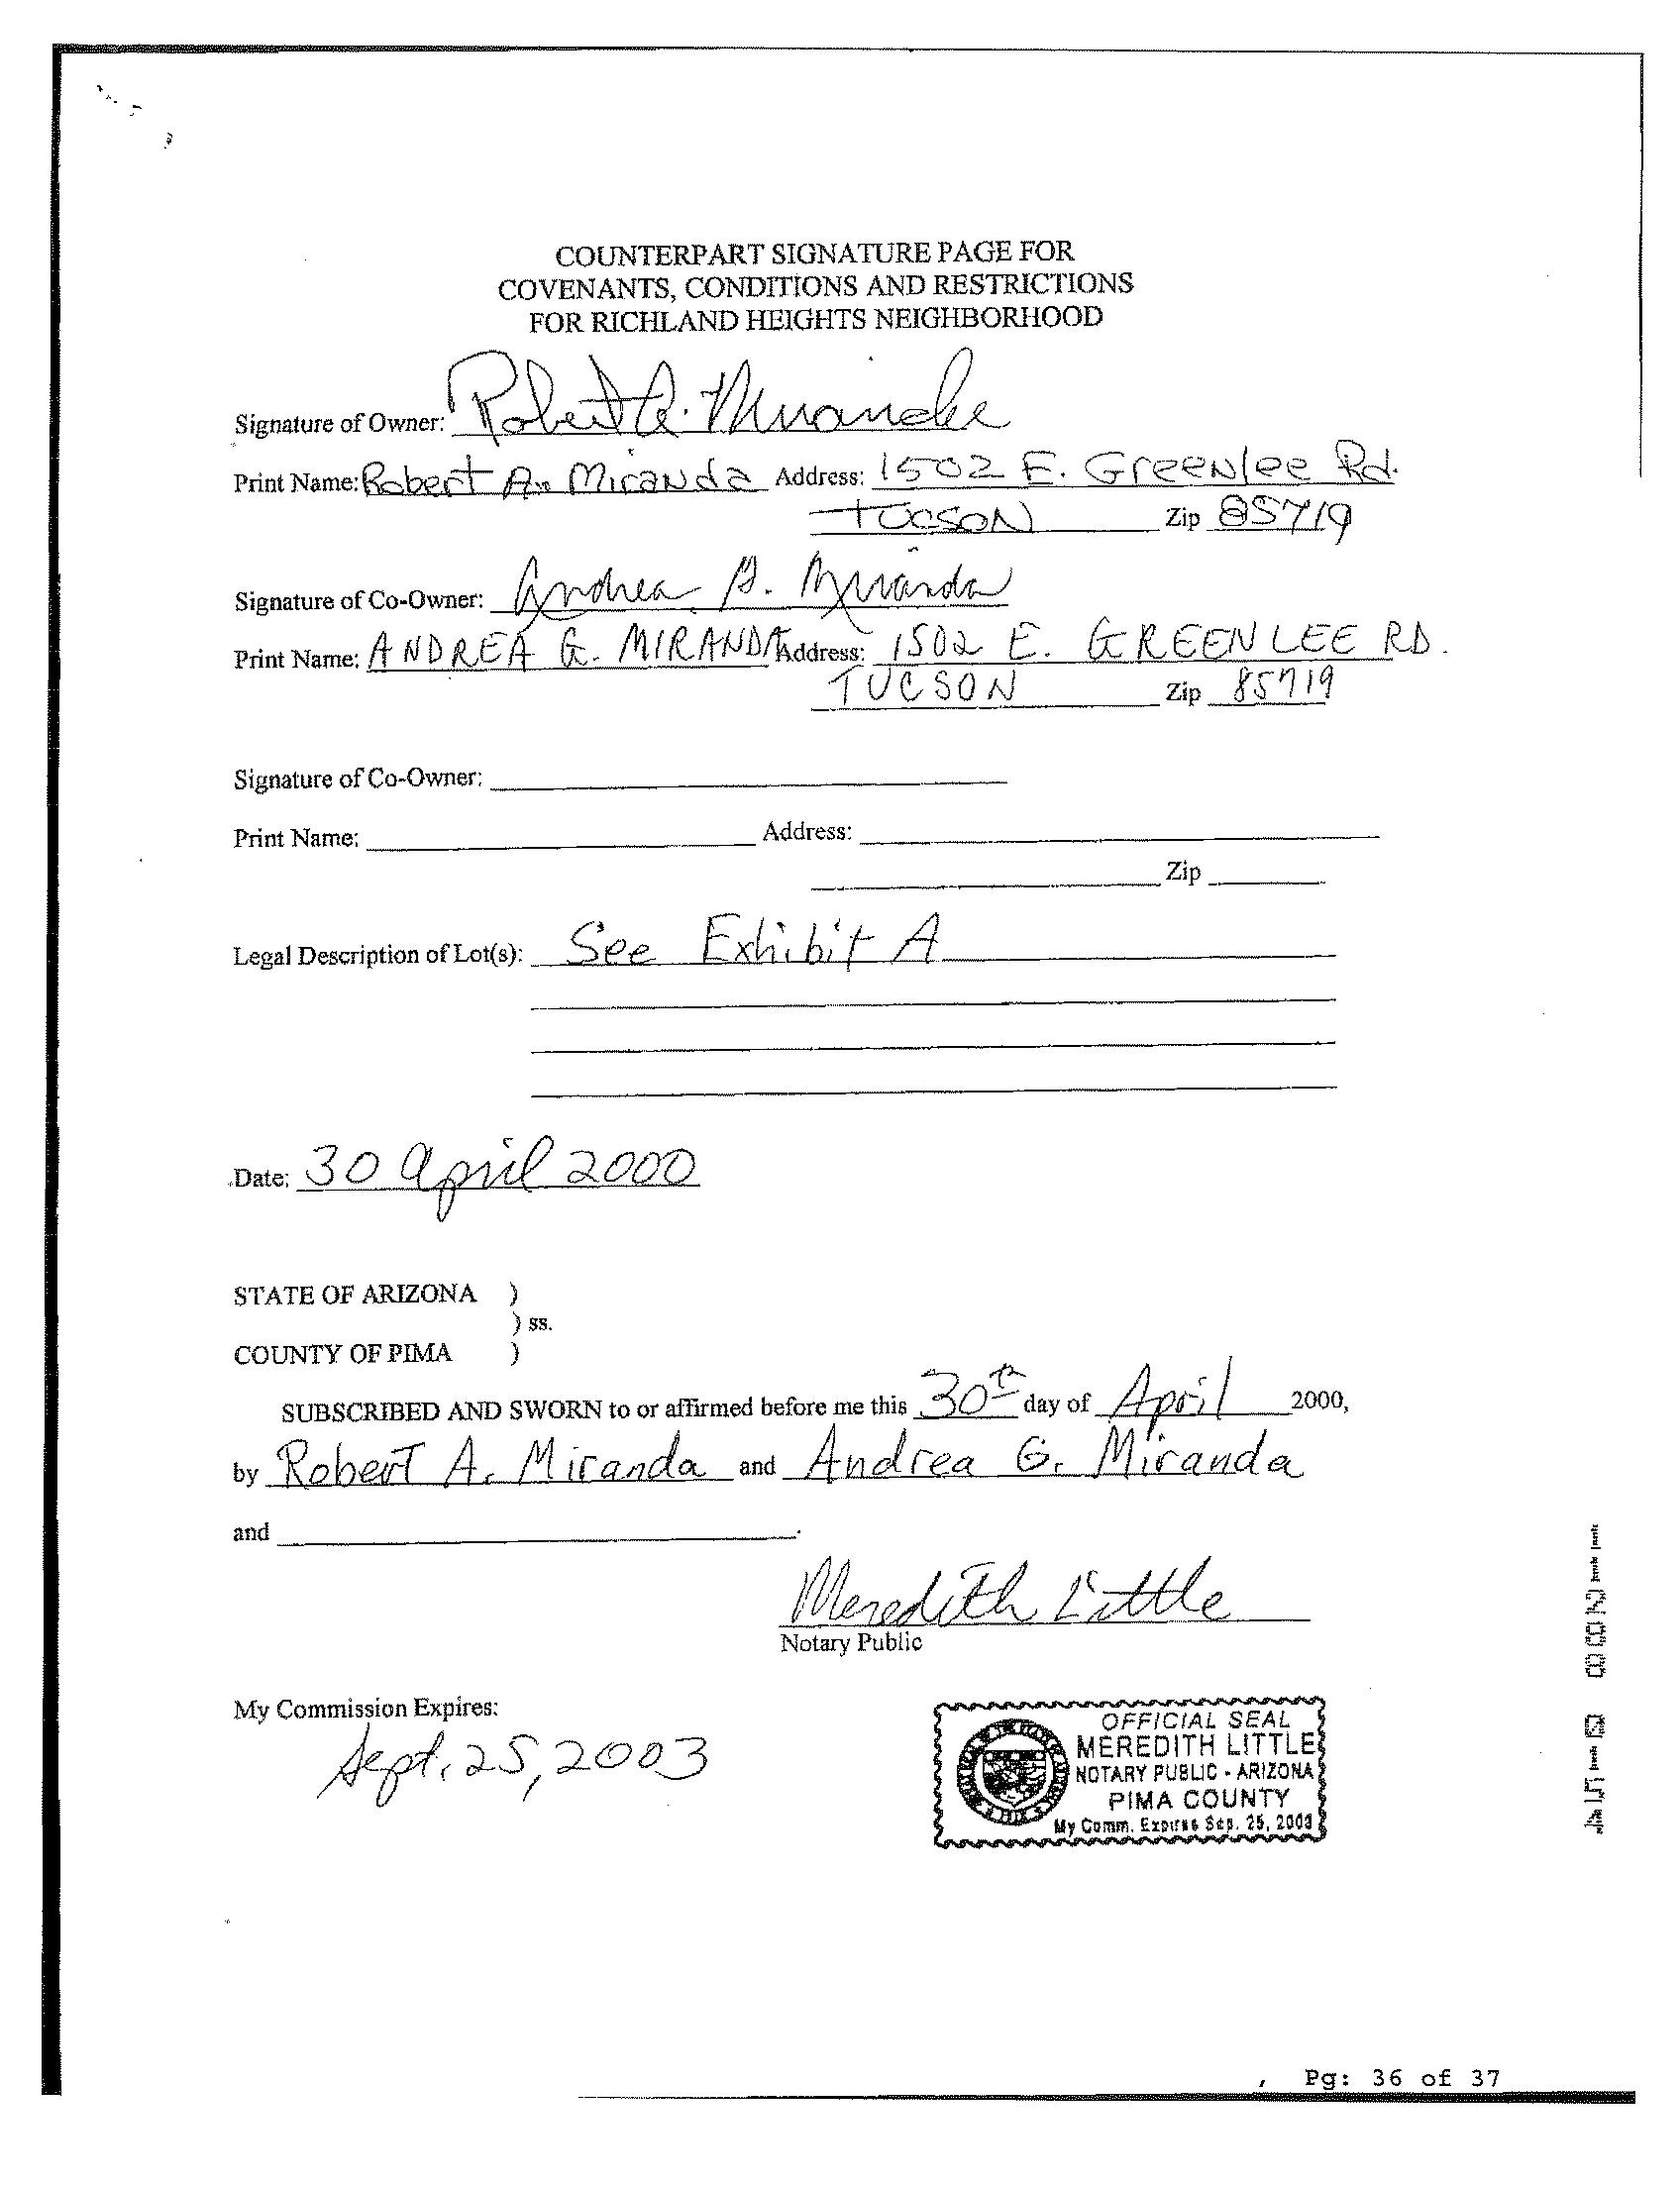 COUNTERPART SIGNATURE PAGE FOR
COVENANTS, CONDITIONS AND RESTRICTIONS
FOR RICHLAND HEIGHTS NEIGHBORHOOD
Signature of Owner: Robert A. Miranda
Print Name: Robert A. Miranda Address: 1502 E. Greenlee Rd.
TUCSON Zip 85719
Signature of Co-Owner: Andrea G. Miranda
Print Name: ANDREA G. MIRANDA Address: 1502 E. GREENLEE RD.
TUCSON Zip 85719
Signature of Co-Owner:
Print Name: Address:
Zip
Legal Description of Lot(s): See Exhibit A
Date: 30 April 2000
STATE OF ARIZONA )
) ss.
COUNTY OF PIMA )
SUBSCRIBED AND SWORN to or affirmed before me this 30th day of April 2000,
by Robert A. Miranda and Andrea G. Miranda
and .
Meredith Little
Notary Public
My Commission Expires:
Sept. 25, 2003
OFFICIAL SEAL
MEREDITH LITTLE
NOTARY PUBLIC - ARIZONA
PIMA COUNTY
My Comm. Expires Sep. 25, 2003
Pg: 36 of 37